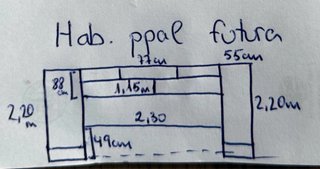 Hab. ppal futura
77cm
55cm
88 cm
1,15m
2,20 m
2,30
2,20m
49cm